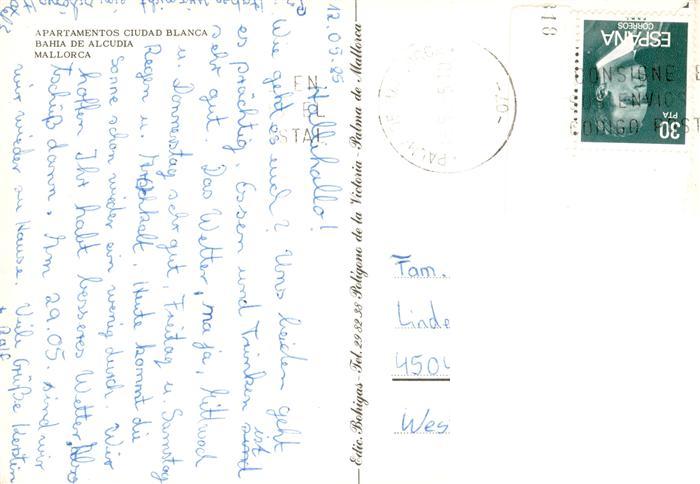 APARTAMENTOS CIUDAD BLANCA
BAHIA DE ALCUDIA
MALLORCA
12.05.85
Halluhallo!
Wie geht es euch? Uns beiden geht
es prächtig. Essen und Trinken sind
sehr gut. Das Wetter, na ja, Mittwoch
u. Donnerstag sehr gut, Freitag u. Samstag
Regen u. Kalt. Heute kommt die
Sonne schon wieder ein wenig durch. Wir
hoffen Ihr habt besseres Wetter. Also
tschüß dann. Am 29.05. sind wir
wir wieder zu Hause. Viele Grüße Kerstin
+ Ralf
Edic. Bohigas - Tel. 29 82 38 Polígono de la Victoria - Palma de Mallorca
ESPAÑA
CORREOS
30
PTA
CONSIGNE
ENVIOS
Fam.
Linde
4504
Wes